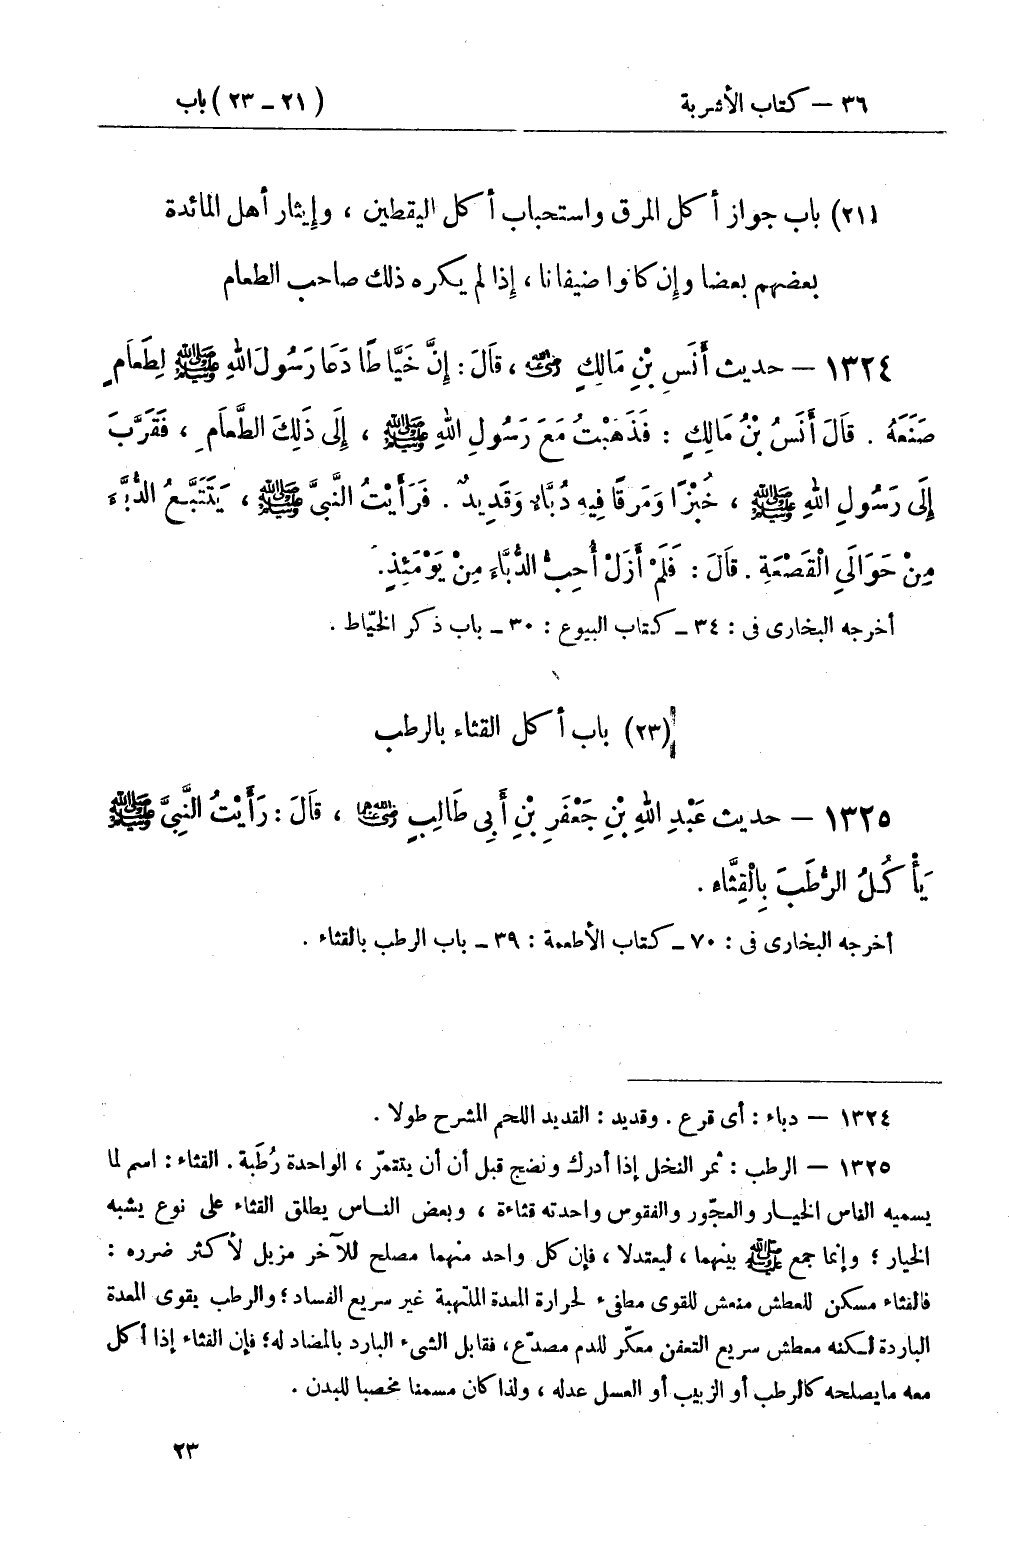 ٣٦ – كتاب الأشربة (٢١ – ٢٣) باب
(٢١) باب جواز أكل المرق واستحباب أكل اليقطين ، وإيثار أهل المائدة
بعضهم بعضا وإن كانوا ضيفانا ، إذا لم يكره ذلك صاحب الطعام
١٣٢٤ – حديث أَنَسِ بْنِ مَالِكٍ رضي الله عنه ، قَالَ : إِنَّ خَيَّاطًا دَعَا رَسُولَ اللهِ ﷺ لِطَعَامٍ
صَنَعَهُ . قَالَ أَنَسُ بْنُ مَالِكٍ : فَذَهَبْتُ مَعَ رَسُولِ اللهِ ﷺ ، إِلَى ذَلِكَ الطَّعَامِ ، فَقَرَّبَ
إِلَى رَسُولِ اللهِ ﷺ ، خُبْزًا وَمَرَقًا فِيهِ دُبَّاءٌ وَقَدِيدٌ . فَرَأَيْتُ النَّبِيَّ ﷺ ، يَتَتَبَّعُ الدُّبَّاءَ
مِنْ حَوَالَيِ الْقَصْعَةِ . قَالَ : فَلَمْ أَزَلْ أُحِبُّ الدُّبَّاءَ مِنْ يَوْمَئِذٍ .
أخرجه البخارى فى : ٣٤ – كتاب البيوع : ٣٠ – باب ذكر الخيّاط .
(٢٣) باب أكل القثاء بالرطب
١٣٢٥ – حديث عَبْدِ اللهِ بْنِ جَعْفَرِ بْنِ أَبِى طَالِبٍ رضي الله عنهما ، قَالَ : رَأَيْتُ النَّبِىَّ ﷺ
يَأْكُلُ الرُّطَبَ بِالْقِثَّاءِ .
أخرجه البخارى فى : ٧٠ – كتاب الأطعمة : ٣٩ – باب الرطب بالقثاء .
١٣٢٤ – دباء : أى قرع . وقديد : القديد اللحم المشرح طولا .
١٣٢٥ – الرطب : ثمر النخل إذا أدرك ونضج قبل أن أن يتتمرّ ، الواحدة رُطَبة . القثاء : اسم لما
يسميه الناس الخيار والعجّور والفقوص واحدته قثاءة ، وبعض الناس يطلق القثاء على نوع يشبه
الخيار ؛ وإنما جمع ﷺ بينهما ، ليعتدلا ، فإن كل واحد منهما مصلح للآخر مزيل لأكثر ضرره :
فالقثاء مسكن للعطش منعش للقوى مطفىء لحرارة المعدة الملتهبة غير سريع الفساد ؛ والرطب يقوى المعدة
الباردة لكنه معطش سريع التعفن معكّر للدم مصدّع ، فقابل الشىء البارد بالمضاد له؛ فإن القثاء إذا أكل
معه مايصلحه كالرطب أو الزبيب أو العسل عدله ، ولذا كان مسمنا مخصبا للبدن .
٢٣